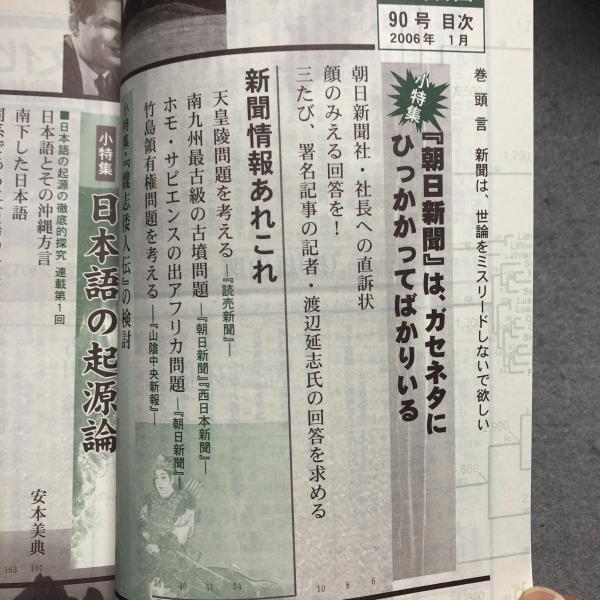 90号 目次
2006年 1月
巻頭言 新聞は、世論をミスリードしないで欲しい
小特集
『朝日新聞』は、ガセネタに
ひっかかってばかりいる
朝日新聞社・社長への直訴状
顔のみえる回答を!
三たび、署名記事の記者・渡辺延志氏の回答を求める
6
8
10
新聞情報あれこれ
天皇陵問題を考える―『読売新聞』―
南九州最古級の古墳問題―『朝日新聞』『西日本新聞』―
ホモ・サピエンスの出アフリカ問題―『朝日新聞』―
竹島領有権問題を考える―『山陰中央新報』―
34
41
46
51
小特集・『魏志倭人伝』の検討
小特集
日本語の起源論
■日本語の起源の徹底的探究 連載第1回
日本語とその沖縄方言
南下した日本語
安本美典
107
163